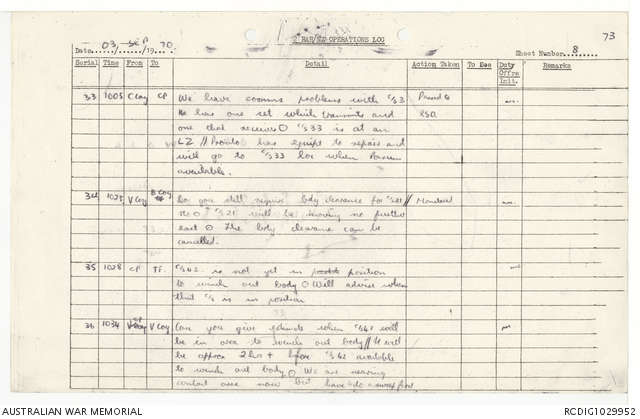 73
2 RAR/NZ OPERATIONS LOG
Date 03 SEP 1970
Sheet Number 8
Serial Time From To Detail Action Taken To See Duty Offrs Init. Remarks
33 1005 C Coy CP We have comms problems with C/S 33 Passed to
He has one set which transmits and RSO.
one that receives O C/S 33 is at an
LZ // has equipt to repair and
will go to C/S 33 loc when
available.
34 1025 V Coy B Coy Do you still require body clearance for C/S 21 // Monitored
C/S 21 will be moving no further
east O The body clearance can be
cancelled.
35 1028 CP TF. C/S 42 is not yet in position
to winch out body O Will advise when
that C/S is in position
36 1034 CP V Coy Can you give when C/S 42 will
be in area to winch out body // It will
be approx 2 hrs + before C/S 42 available
to winch out body O We are nearing
contact area now but have to do a sweep first
AUSTRALIAN WAR MEMORIAL
RCDIG1029952